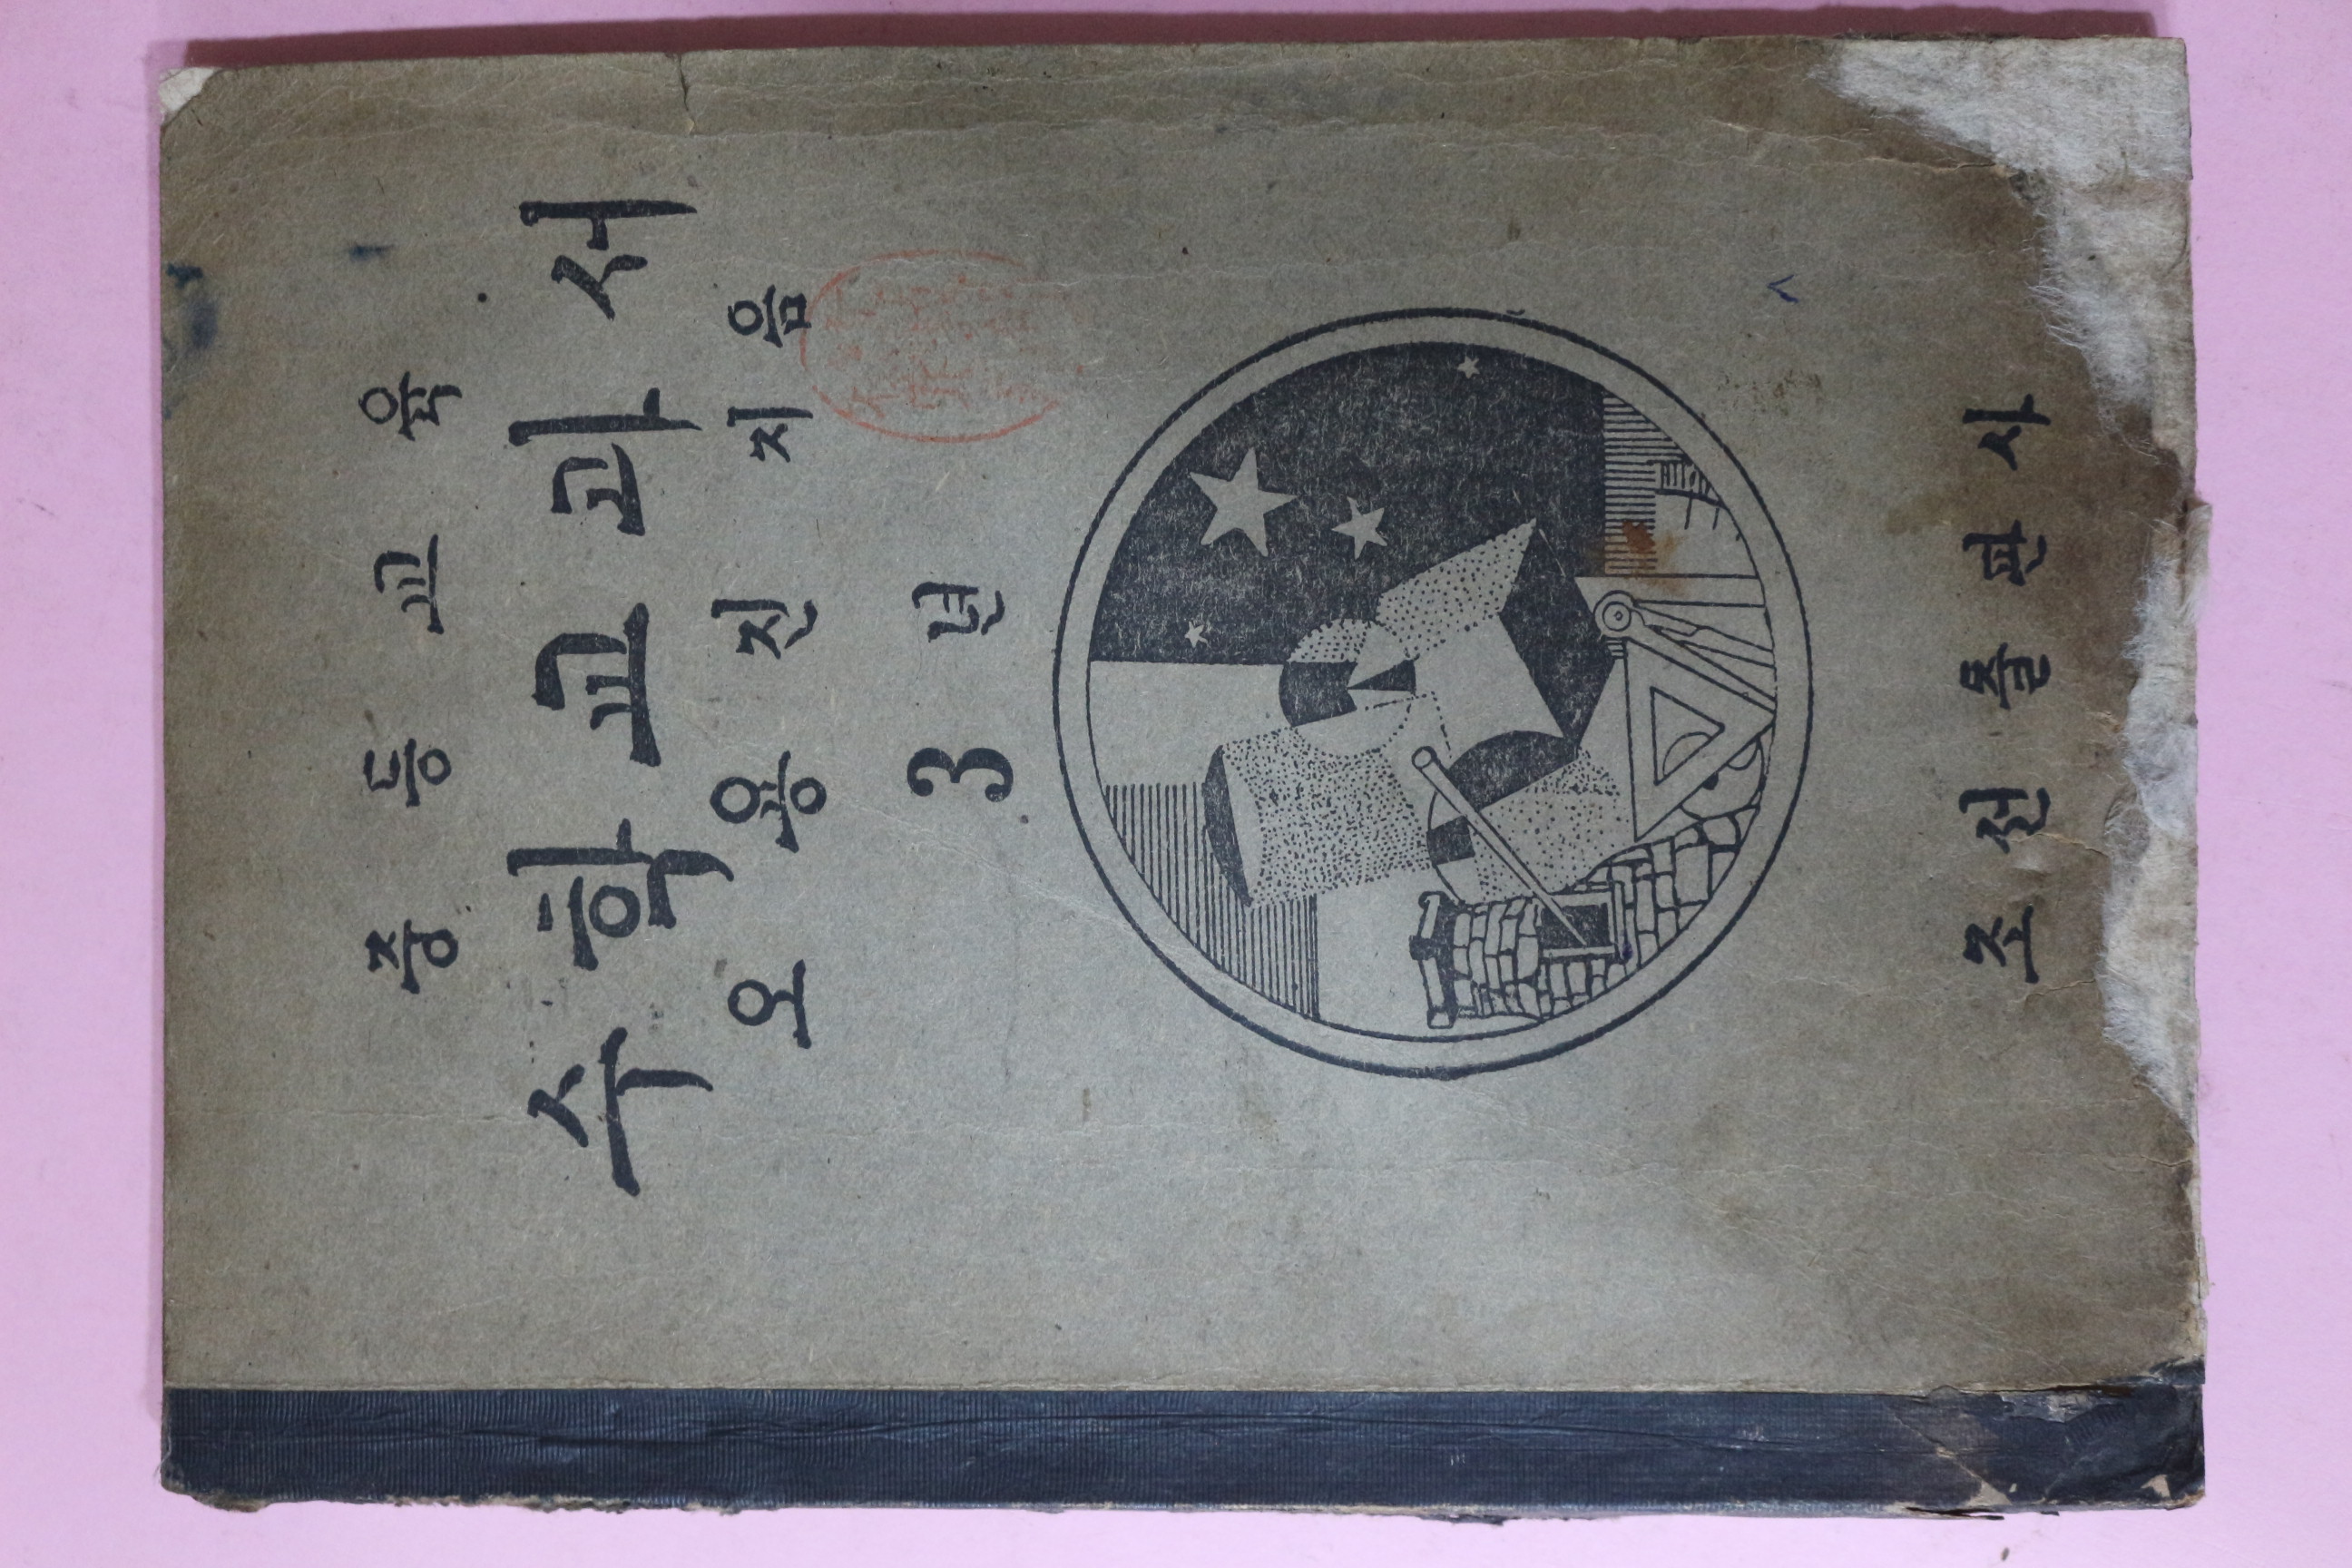 중등교육
수학교과서
오용진 지음
3년
조선출판사